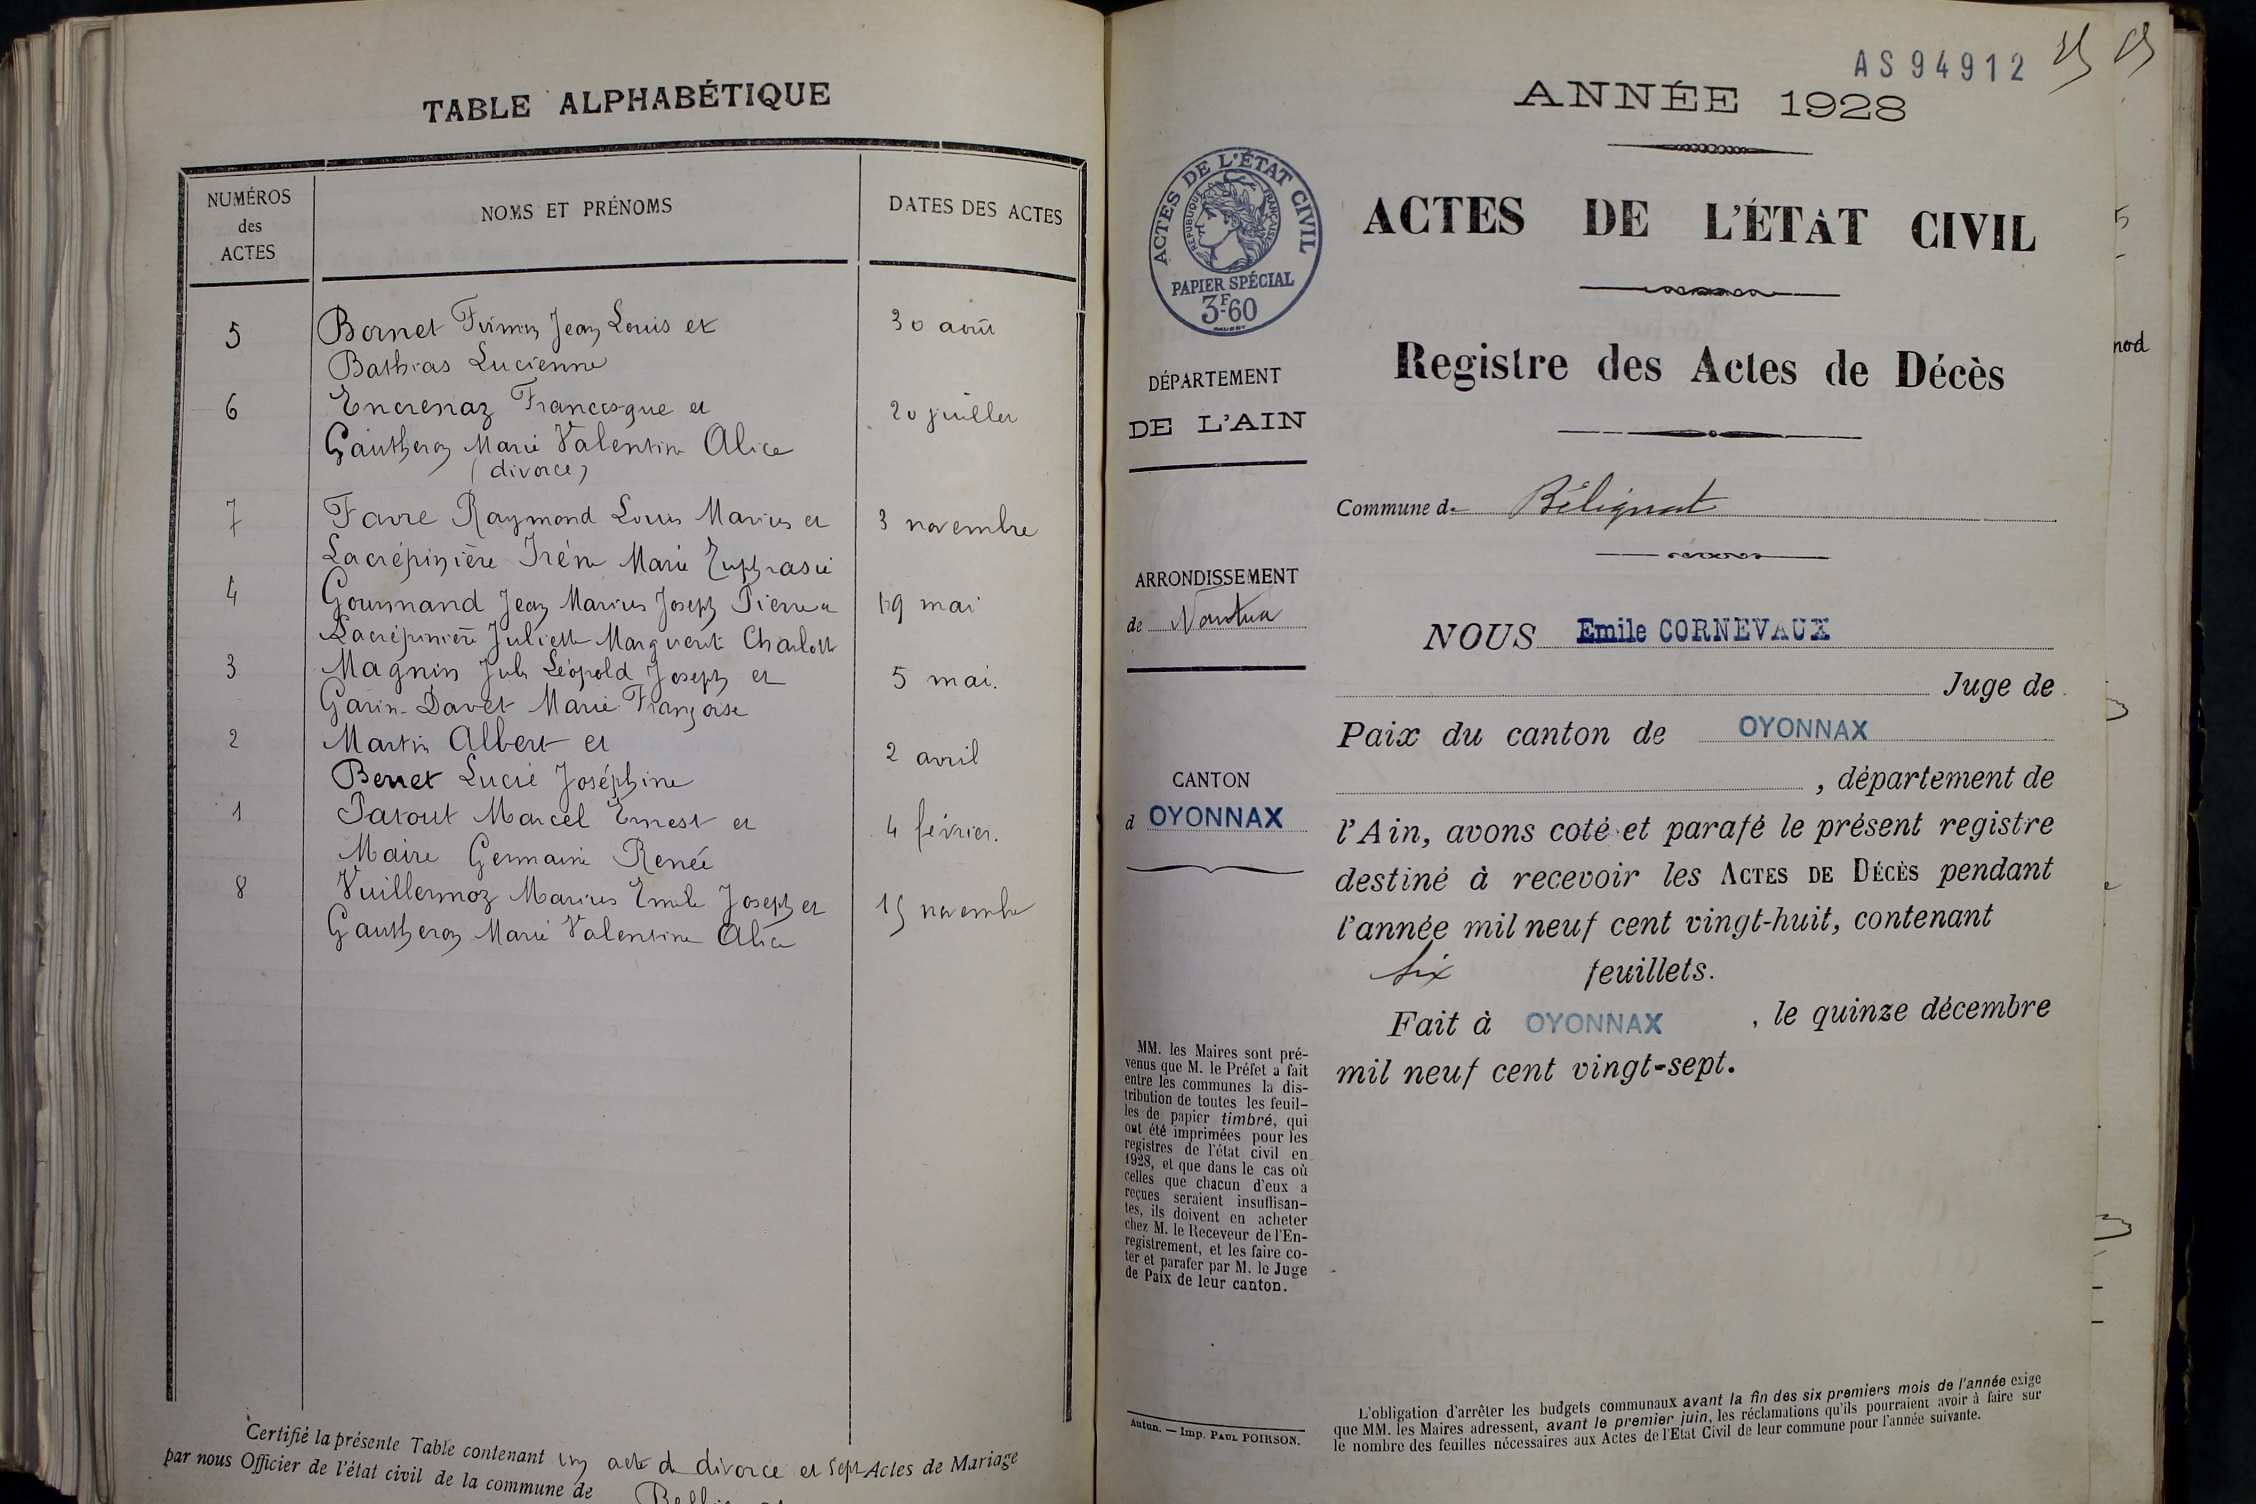 TABLE ALPHABÉTIQUE
NUMÉROS
des
ACTES
NOMS ET PRÉNOMS
DATES DES ACTES
5 Bornet Firmin Jean Louis et 30 août
Bathias Lucienne
6 Encrenaz Francisque et 20 juillet
Gautheron Marie Valentine Alice
(divorce)
7 Favre Raymond Louis Marius et 3 novembre
Lacrépinière Irène Marie Euphrasie
4 Gourmand Jean Marius Joseph Pierre et 19 mai
Lacrépinière Juliette Marguerite Charlotte
3 Magnin Jules Léopold Joseph et 5 mai.
Garin-Davet Marie Françoise
2 Martin Albert et 2 avril
Benet Lucie Joséphine
1 Patout Marcel Ernest et 4 février.
Maire Germaine Renée
8 Vuillermoz Marius Emile Joseph et 15 novembre
Gautheron Marie Valentine Alice
Certifié la présente Table contenant un acte de divorce et sept Actes de Mariage
par nous Officier de l'état civil de la commune de
AS94912
ANNÉE 1928
ACTES DE L'ÉTAT CIVIL
RÉPUBLIQUE FRANÇAISE
PAPIER SPÉCIAL
3F60
ACTES DE L'ÉTAT CIVIL
Registre des Actes de Décès
DÉPARTEMENT
DE L'AIN
Commune de Bélignat
ARRONDISSEMENT
de Nantua
NOUS Emile CORNEVAUX
Juge de
Paix du canton de OYONNAX
CANTON
d OYONNAX
, département de
l'Ain, avons coté et parafé le présent registre
destiné à recevoir les ACTES DE DÉCÈS pendant
l'année mil neuf cent vingt-huit, contenant
six feuillets.
Fait à OYONNAX, le quinze décembre
mil neuf cent vingt-sept.
MM. les Maires sont pré-
venus que M. le Préfet a fait
entre les communes la dis-
tribution de toutes les feuil-
les de papier timbré, qui
ont été imprimées pour les
registres de l'état civil en
1928, et que dans le cas où
celles que chacun d'eux a
reçues seraient insuffisan-
tes, ils doivent en acheter
chez M. le Receveur de l'En-
registrement, et les faire co-
ter et parafer par M. le Juge
de Paix de leur canton.
Autun. — Imp. PAUL POIRSON.
L'obligation d'arrêter les budgets communaux avant la fin des six premiers mois de l'année exige
que MM. les Maires adressent, avant le premier juin, les réclamations qu'ils pourraient avoir à faire sur
le nombre des feuilles nécessaires aux Actes de l'Etat Civil de leur commune pour l'année suivante.